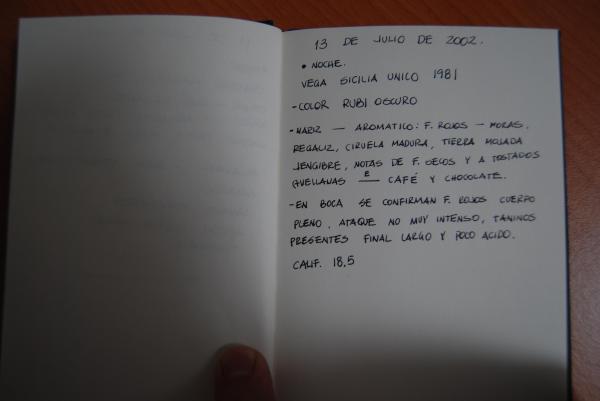 13 DE JULIO DE 2002.
• NOCHE.
VEGA SICILIA UNICO 1981
-COLOR RUBI OSCURO
-NARIZ — AROMATICO: F. ROJOS — MORAS,
REGALIZ, CIRUELA MADURA, TIERRA MOJADA
JENGIBRE, NOTAS DE F. SECOS Y A TOSTADOS
AVELLANAS E CAFÉ Y CHOCOLATE.
-EN BOCA SE CONFIRMAN F. ROJOS CUERPO
PLENO, ATAQUE NO MUY INTENSO, TANINOS
PRESENTES FINAL LARGO Y POCO ACIDO.
CALIF. 18,5